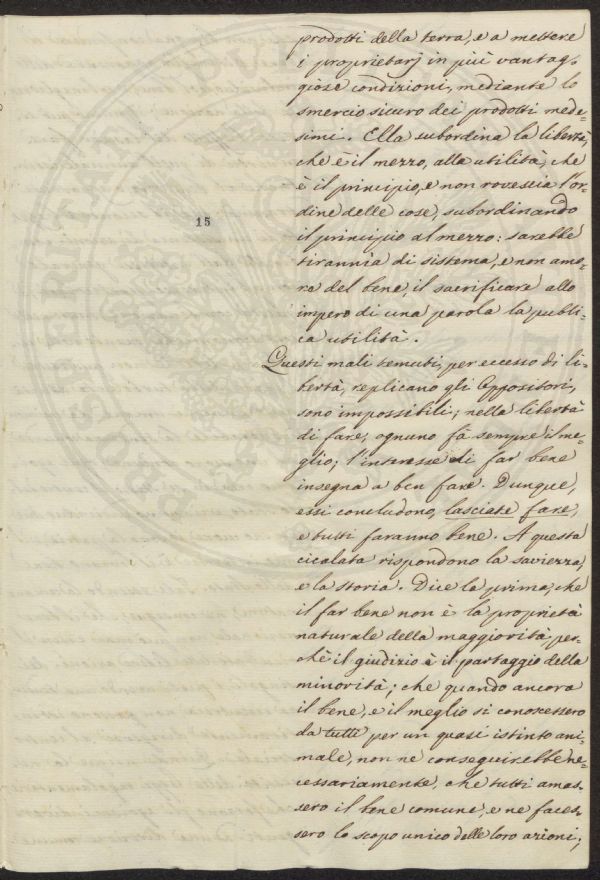 prodotti della terra, e a mettere
i proprietarj in più vantag-
giose condizioni, mediante lo
smercio sicuro dei prodotti mede-
simi. Ella subordina la libertà,
che è il mezzo, alla utilità, che
è il principio, e non rovescia l'or-
dine delle cose, subordinando
15
il principio al mezzo: sarebbe
tirannia di sistema, e non amo-
re del bene, il sacrificare allo
impero di una parola la pubbli-
ca utilità.
Questi mali temuti, per eccesso di li-
bertà, replicano gli Oppositori,
sono impossibili; nella libertà
di fare, ognuno fà sempre il me-
glio; l'interesse di far bene
insegna a ben fare. Dunque,
essi concludono, lasciate fare,
e tutti faranno bene. A questa
cicalata rispondono la saviezza,
e la storia. Dice la prima, che
il far bene non è la proprietà
naturale della maggiorità, per-
chè il giudizio è il partaggio della
minorità; che quando ancora
il bene, e il meglio si conoscessero
da tutti per un quasi istinto ani-
male, non ne conseguirebbe ne-
cessariamente, che tutti amas-
sero il bene comune, e ne faces-
sero lo scopo unico delle loro azioni;